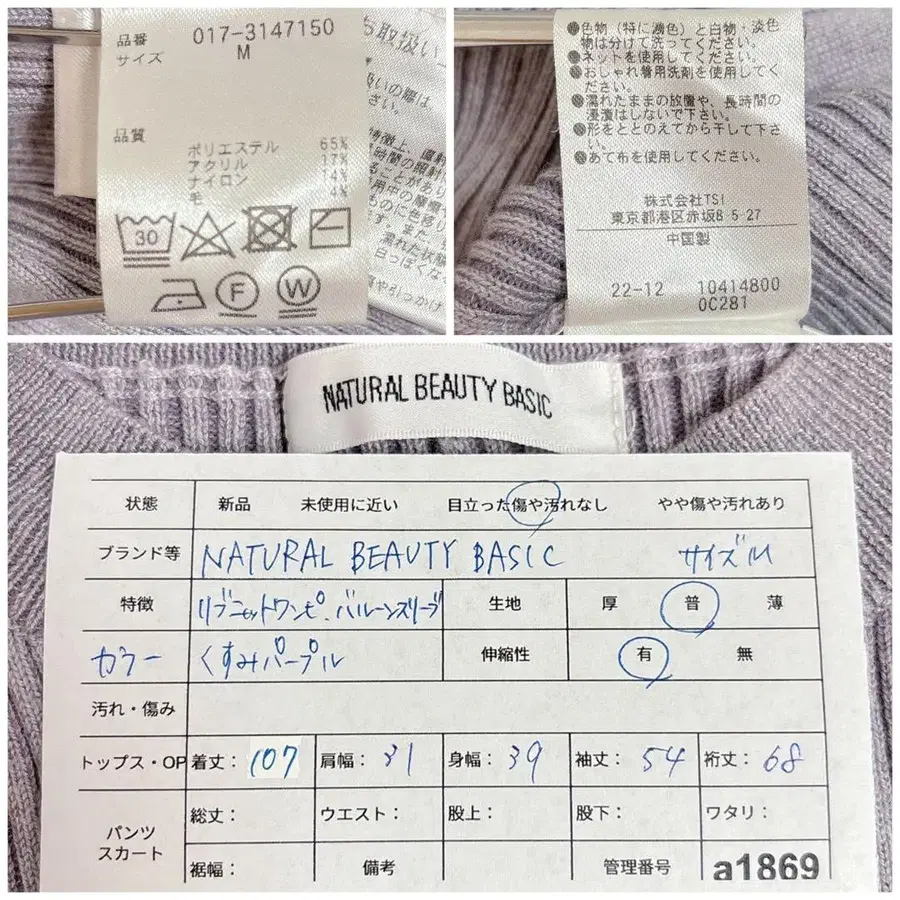 品番 017-3147150
サイズ M
品質
ポリエステル 65%
アクリル 17%
ナイロン 14%
毛 4%
30
F
W
取扱い
扱いの際は
さい。
特徴上、直射
時間の照射
ることがあり
用中の摩擦や
ものに色移り
。また、
濡れた状態
白っぽくな
や引っかけ
●色物（特に濃色）と白物・淡色
物は分けて洗ってください。
●ネットを使用してください。
●おしゃれ着用洗剤を使用してく
ださい。
●濡れたままの放置や、長時間の
浸漬はしないで下さい。
●形をととのえてから干して下さ
い。
●あて布を使用してください。
株式会社TSI
東京都港区赤坂8 5-27
中国製
22-12 10414800
0C281
NATURAL BEAUTY BASIC
状態 新品 未使用に近い 目立った傷や汚れなし やや傷や汚れあり
ブランド等 NATURAL BEAUTY BASIC サイズM
特徴 リブニットワンピ.バルーンスリーブ 生地 厚 普 薄
カラー くすみパープル 伸縮性 有 無
汚れ・傷み
トップス・OP 着丈：107 肩幅：31 身幅：39 袖丈：54 裄丈：68
パンツ
スカート
総丈： ウエスト： 股上： 股下： ワタリ：
裾幅： 備考 管理番号 a1869